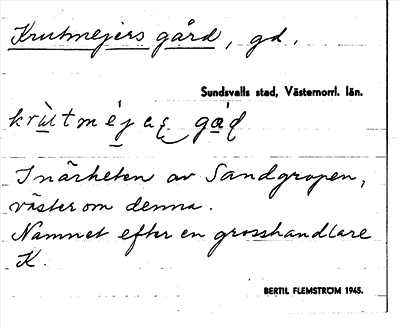 Krutmejers gård, gd.
Sundsvalls stad, Västernorrl. län.
krùtméjas̡ gáḍ
I närheten av Sandgropen,
väster om denna.
Namnet efter en grosshandlare
K.
BERTIL FLEMSTRÖM 1945.